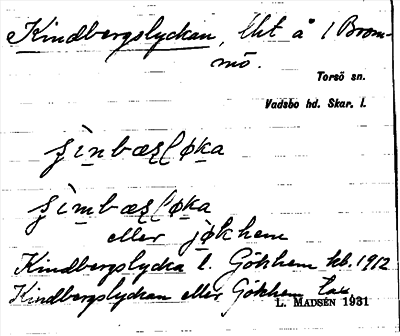 Kindbergslyckan, lht å 1 Brom-
mö.
Torsö sn.
Vadsbo hd. Skar. l.
eller jøkhem
Kindbergslycka l. Gökhem kb. 1912
Kindbergslyckan eller Gökhem tax
L. MADSÉN 1931